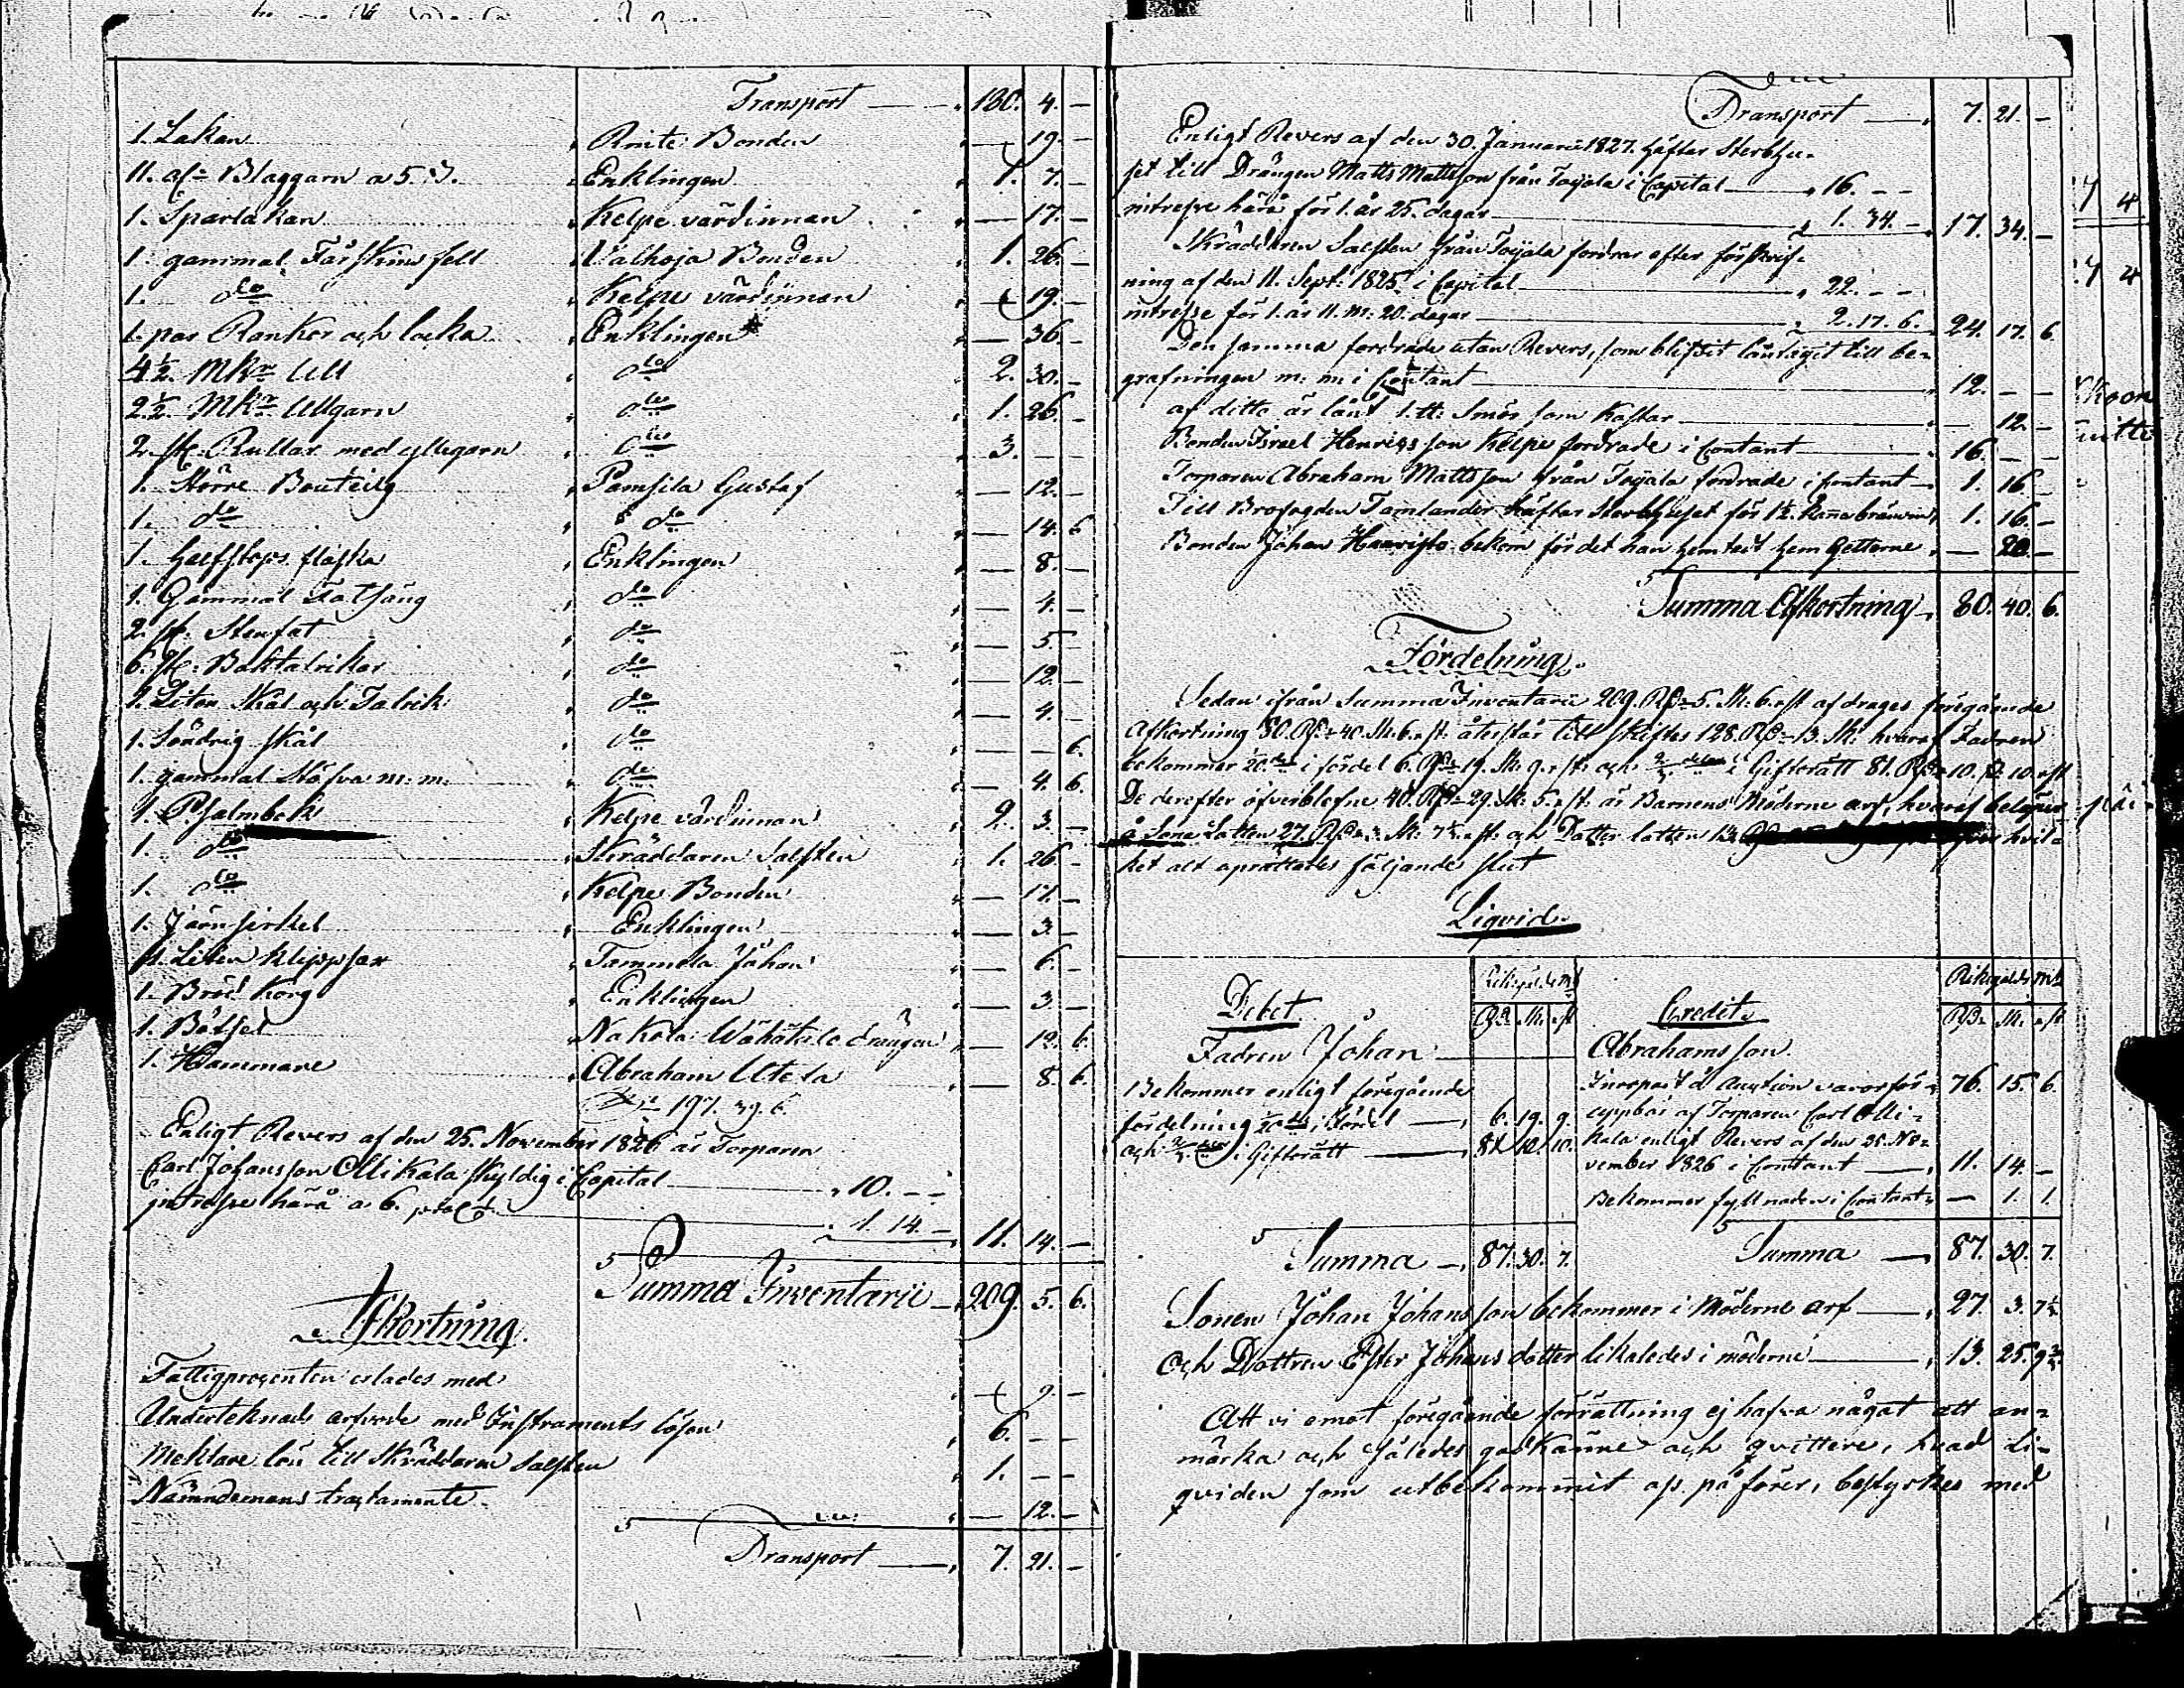 Transport — 180. 4. —
1. Lakan Knite Bonden — 19. —
11. al:r Blaggarn a 5. Enklingen 1. 7. —
1. Sparlakan Kelpe värdinnan — 17. —
1. gammal Fårskins fell Lalhoja Bonden 1. 26. —
1. do Kelpe värdinnan — 19. —
1. par Rankor och locka Enklingen — 36. —
4½. Mkr Ull do 2. 30. —
2½. Mkr Ullgarn do 1. 26. —
2. st: Rullar med yllegarn do 3. — —
1. Större Bouteilg Pamsila Gustaf — 12. —
1. do do — 14. 6
1. Halfstops flaska Enklingen — 8. —
1. Gammal Fatsäng do — 4. —
2. st: Stenfat do — 5. —
6. st: Baktalrikar do — 12. —
1. Liten Skål och Talrik do — 4. —
1. Söndrig skål do — — 6.
1. gammal Stöfva m: m: do — 4. 6.
1. Psalmbok Kelpe värdinnan 2. 3. —
1. do Skräddaren Salsten 1. 26. —
1. do Kelpe Bonden — 17. —
1. Järnsirkel Enklingen — 3. —
1. Liten klippsax Tammela Johan — 6. —
1. Bröd Korg Enklingen — 3. —
1. Bötsel Nakola Wähätalo drängen — 12. 6.
1. Hammare Abraham Utela — 8. 6.
197. 39. 6.
Enligt Revers af den 25. November 1826 är Torparen
Carl Johansson Ollikala skyldig i Capital — 10. — —
intresse härå a 6. 1. 14. — 11. 14. —
Summa Inventarii — 209. 5. 6.
Afkortning.
Fattigprocenten erlades med — 9. —
Underteknads arfvode med Instruments lösen 6. — —
Meklare lön till Skräddaren Salsten 1. — —
Nämndemans tractamente — 12. —
Transport — 7. 21. —
Transport — 7. 21. —
Enligt Revers af den 30. Januarii 1827. häftar Sterbhu-
set till Drängen Matts Mattsson från Toijala i Capital — 16. — —
intresse härå för 1. år 25. dagar — 1. 34. — 17. 34. —
Skräddaren Salsten från Toijala fordrar efter förskrif-
ning af den 11. Sept: 1825. i Capital — 22. — —
intresse för 1. år 11. m: 20. dagar — 2. 17. 6. 24. 17. 6
Den samma fordrade utan Revers, som blifvit låntagit till be-
grafningen m: m: i Contant — 12. — —
af ditto är lånt 1. tt: Smör som kostar — 12. —
Bonden Israel Henricsson Kelpe fordrade i Contant — 16. — —
Torparen Abraham Mattsson från Toijala fordrade i Contant — 1. 16. —
Till Brofogden Tamlander häftar Sterbhuset för 1½. kanna bränvin 1. 16. —
Bonden Johan Haavisto bekom för det han hemtat hem Getterne — 20. —
Summa Afkortning — 80. 40. 6.
Fördelning.
Sedan ifrån Summa Inventarii 209. Rd: 5. sk: 6. rst afdrages föregående
Afkortning 80. Rd: 40. sk: 6. rst: återstår till skiftes 128. Rd: 13. sk: hvaraf Fadren
bekommer 20:de i fördel 6. Rd: 19. sk: 9. rst: och ⅔ delar i Giftorätt 81. Rd: 10. sk: 10. rst
De derefter öfverblefne 40. Rd: 29. sk: 5. rst: är Barnens Möderne arf, hvaraf belöper
å Sone Lotten 27. Rd: 3. sk: 7½. rst: och Dotter lotten 13 hvil-
ket alt aprättades följande slut
Liqvid.
Debet
Riksgälds Mt
Rd sk rst
Credit.
Riksgälds Mt
Rd sk rst
Fadren Johan Abrahamsson.
Bekommer enligt föregående
fördelning 1/20 de i Fördel — 6. 19. 9.
och ⅔ delar i Giftorätt — 81. 10. 10.
Inropat å Auction varor för — 76. 15. 6.
uppbär af Torparen Carl Olli-
kala enligt Revers af den 25. No-
vember 1826 i Contant — 11. 14. —
Bekommer fyllnaden i Contant — 1. 1.
Summa — 87. 30. 7.
Summa — 87. 30. 7.
Sonen Johan Johansson bekommer i Möderne arf — 27. 3. 7½.
Och Dottren Ester Johans dotter likaledes i möderne — 13. 25. 9¾.
Att vi emot föregående förrättning ej hafva något att an-
märka och således godkänne och qvittere, hvad Li-
qviden som utbekommit as. påförer, bestyrkes med